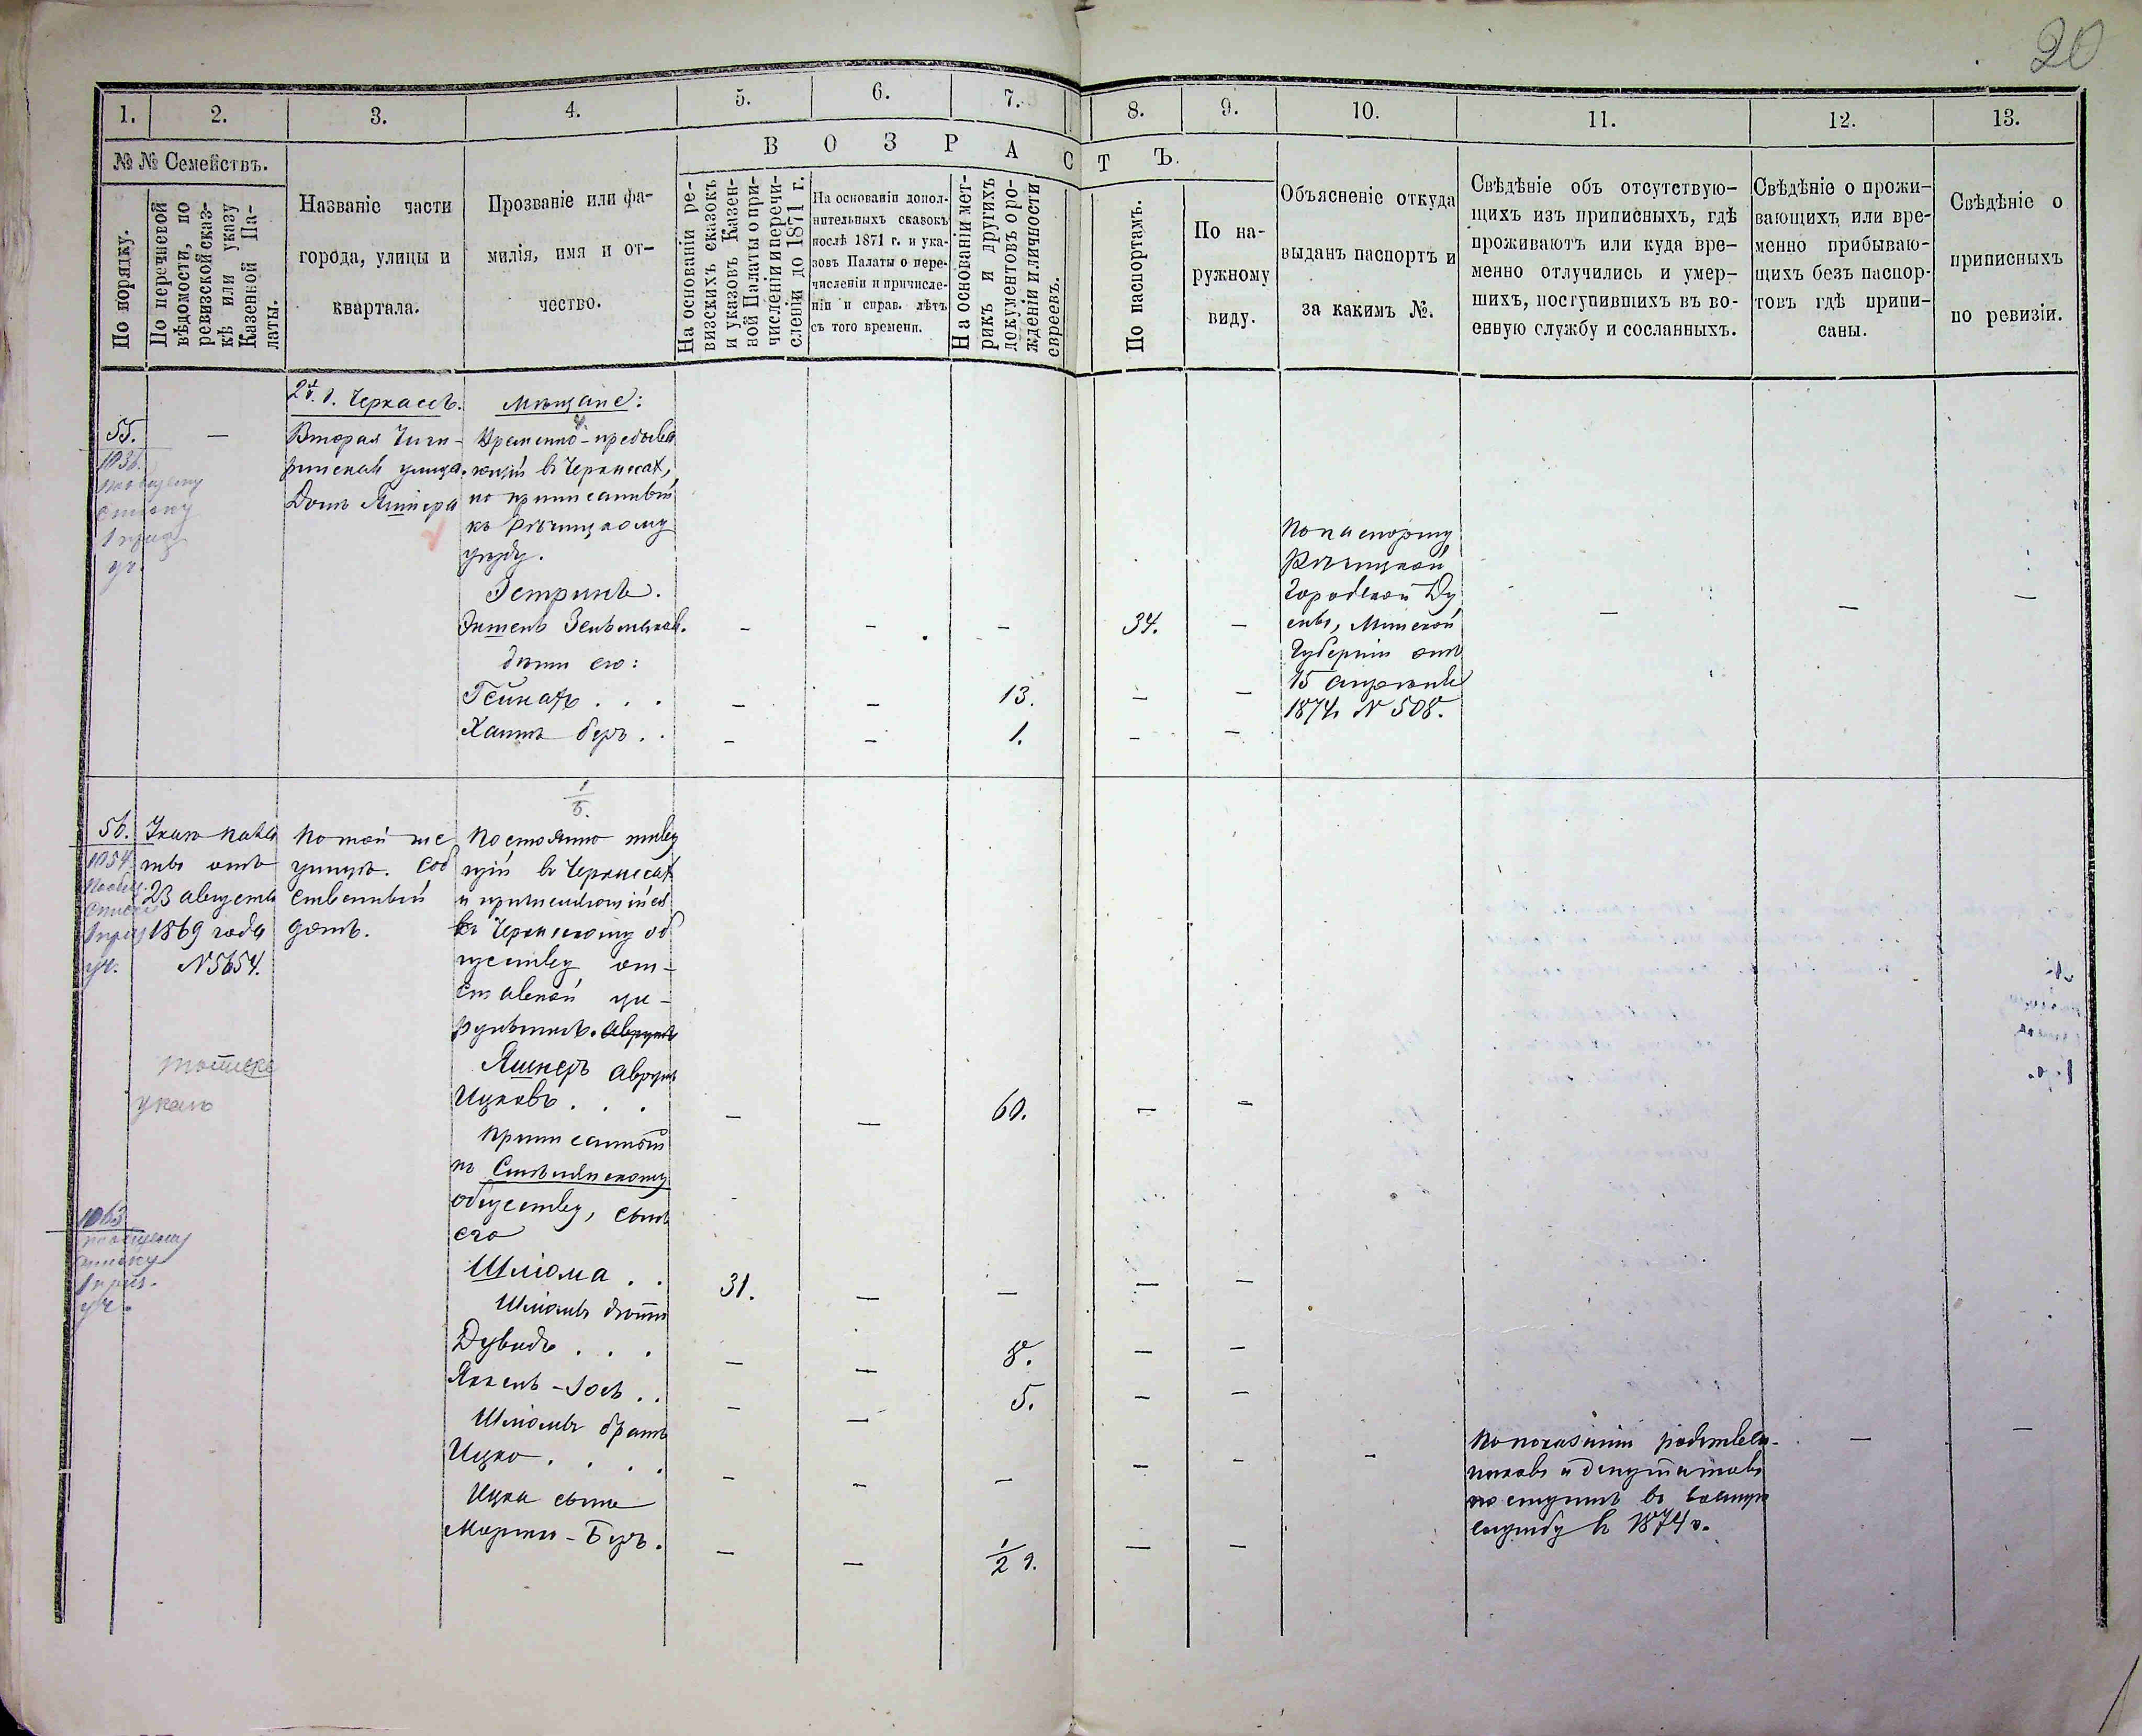 20
1.
2.
3.
4.
5.
6.
7.
8.
9.
10.
11.
12.
13.
№ № Семействъ.
По порядку.
По перечневой
вѣдомости, по
ревизской сказ-
кѣ или указу
Казенной Па-
латы.
Названіе части
города, улицы и
квартала.
Прозваніе или фа-
милія, имя и от-
чество.
ВОЗРАСТЪ.
На основаніи ре-
визскихъ сказокъ
и указовъ Казен-
ной Палаты о при-
численіи и перечи-
сленіи до 1871 г.
На основаніи допол-
нительныхъ сказокъ
послѣ 1871 г. и ука-
зовъ Палаты о пере-
численіи и причисле-
ніи и справ. лѣтъ
съ того времени.
На основаніи мет-
рикъ и другихъ
документовъ о ро-
жденіи и личности
евреевъ.
По паспортамъ.
По на-
ружному
виду.
Объясненіе откуда
выданъ паспортъ и
за какимъ №.
Свѣдѣніе объ отсутствую-
щихъ изъ приписныхъ, гдѣ
проживаютъ или куда вре-
менно отлучились и умер-
шихъ, поступившихъ въ во-
енную службу и сосланныхъ.
Свѣдѣніе о прожи-
вающихъ или вре-
менно прибываю-
щихъ безъ паспор-
товъ гдѣ припи-
саны.
Свѣдѣніе о
приписныхъ
по ревизіи.
55.
1036
по общему
списку
1 приз
уч.
—
г. Черкассъ.
Вторая Чиги-
ринская улица.
Домъ
Мѣщане:
Временно-пребыва
ющій въ Черкассах,
но приписанный
къ Рѣчицкому
уѣзду.
Эстринъ.
Зельманов.
— — — 34. —
дѣти его:
. . . — — 13. — —
Хаимъ Беръ . . — — 1. — —
По паспорту
Рѣчицкой
Городской Ду
мы, Минской
Губерніи отъ
15 апрѣля
1874 N 508.
— — —
56.
1054
По общ.
списку
1 приз
уч.
Указъ Пала
ты отъ
23 августа
1869 года
N 5654.
По той же
улицѣ. Соб
ственный
домъ.
1/5.
Постоянно живу
щій въ Черкассах
и
къ Черкасскому об
ществу от-
ставной
Аврумъ
Ицковъ . . . — — 60. — —
тотъ же
указъ
1063
по общему
списку
1 приз.
уч.
приписанный
къ
обществу, сынъ
его
Шліома . . 31. — — — —
Шліомы дѣти
Дувидъ . . . — — 8. — —
Янкель-Іось . . — — 5. — —
Шліомы братъ
Ицко . . . . — — — — — —
По показанію родствен-
никовъ и депутатовъ
поступилъ въ военную
службу въ 1874 г.
— —
Ицка сынъ
Беръ. — — 1/2 г. — —